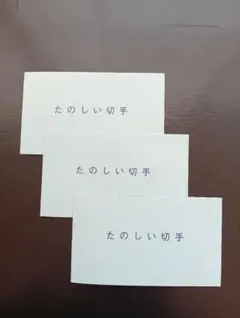 たのしい切手
たのしい切手
たのしい切手